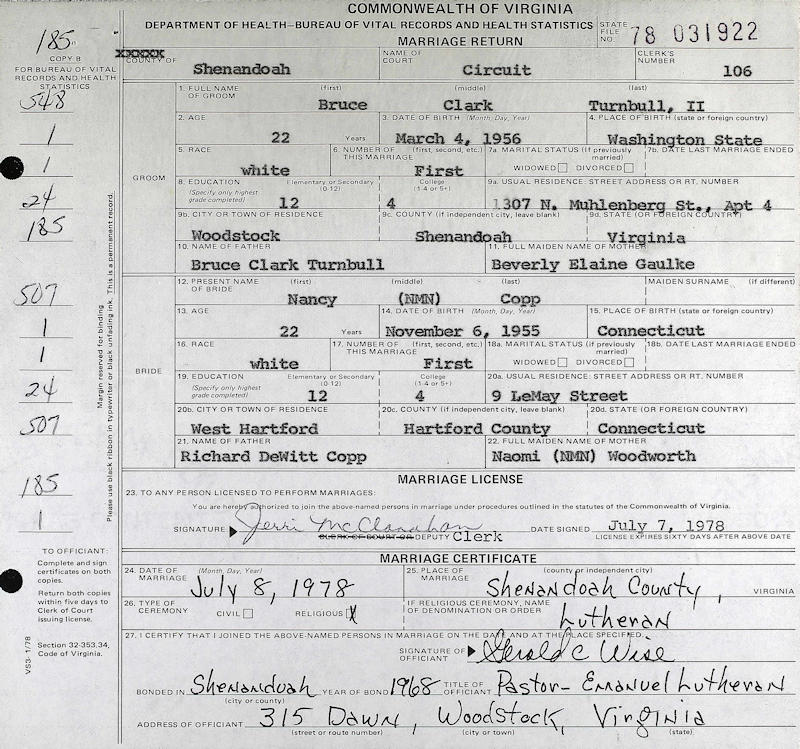 COMMONWEALTH OF VIRGINIA
DEPARTMENT OF HEALTH—BUREAU OF VITAL RECORDS AND HEALTH STATISTICS
MARRIAGE RETURN
STATE FILE NO. 78 031922
185
COPY B
FOR BUREAU OF VITAL RECORDS AND HEALTH STATISTICS
XXXXX
COUNTY OF Shenandoah
NAME OF COURT Circuit
CLERK'S NUMBER 106
548
1
1
24
185
507
1
1
24
507
185
1
Margin reserved for binding
Please use black ribbon in typewriter or black unfading ink. This is a permanent record.
GROOM
1. FULL NAME OF GROOM (first) (middle) (last)
Bruce Clark Turnbull, II
2. AGE 22 Years
3. DATE OF BIRTH (Month, Day, Year) March 4, 1956
4. PLACE OF BIRTH (state or foreign country) Washington State
5. RACE white
6. NUMBER OF THIS MARRIAGE (first, second, etc.) First
7a. MARITAL STATUS (If previously married) WIDOWED DIVORCED
7b. DATE LAST MARRIAGE ENDED
8. EDUCATION (Specify only highest grade completed) Elementary or Secondary (0-12) 12 College (1-4 or 5+) 4
9a. USUAL RESIDENCE: STREET ADDRESS OR RT. NUMBER 1307 N. Muhlenberg St., Apt 4
9b. CITY OR TOWN OF RESIDENCE Woodstock
9c. COUNTY (if independent city, leave blank) Shenandoah
9d. STATE (OR FOREIGN COUNTRY) Virginia
10. NAME OF FATHER Bruce Clark Turnbull
11. FULL MAIDEN NAME OF MOTHER Beverly Elaine Gaulke
BRIDE
12. PRESENT NAME OF BRIDE (first) (middle) (last) MAIDEN SURNAME (if different)
Nancy (NMN) Copp
13. AGE 22 Years
14. DATE OF BIRTH (Month, Day, Year) November 6, 1955
15. PLACE OF BIRTH (state or foreign country) Connecticut
16. RACE white
17. NUMBER OF THIS MARRIAGE (first, second, etc.) First
18a. MARITAL STATUS (if previously married) WIDOWED DIVORCED
18b. DATE LAST MARRIAGE ENDED
19. EDUCATION (Specify only highest grade completed) Elementary or Secondary (0-12) 12 College (1-4 or 5+) 4
20a. USUAL RESIDENCE: STREET ADDRESS OR RT. NUMBER 9 LeMay Street
20b. CITY OR TOWN OF RESIDENCE West Hartford
20c. COUNTY (if independent city, leave blank) Hartford County
20d. STATE (OR FOREIGN COUNTRY) Connecticut
21. NAME OF FATHER Richard DeWitt Copp
22. FULL MAIDEN NAME OF MOTHER Naomi (NMN) Woodworth
MARRIAGE LICENSE
23. TO ANY PERSON LICENSED TO PERFORM MARRIAGES:
You are hereby authorized to join the above-named persons in marriage under procedures outlined in the statutes of the Commonwealth of Virginia.
SIGNATURE Jerri McClanahan DATE SIGNED July 7, 1978
CLERK OF COURT OR DEPUTY Clerk
LICENSE EXPIRES SIXTY DAYS AFTER ABOVE DATE
MARRIAGE CERTIFICATE
24. DATE OF MARRIAGE (Month, Day, Year) July 8, 1978
25. PLACE OF MARRIAGE (county or independent city) Shenandoah County, VIRGINIA
26. TYPE OF CEREMONY CIVIL RELIGIOUS X
IF RELIGIOUS CEREMONY, NAME OF DENOMINATION OR ORDER Lutheran
27. I CERTIFY THAT I JOINED THE ABOVE-NAMED PERSONS IN MARRIAGE ON THE DATE AND AT THE PLACE SPECIFIED.
SIGNATURE OF OFFICIAL Gerald C Wise
BONDED IN Shenandoah (city or county) YEAR OF BOND 1968 TITLE OF OFFICIANT Pastor - Emanuel Lutheran
ADDRESS OF OFFICIAL 315 Dawn, Woodstock, Virginia
(street or route number) (city or town) (state)
TO OFFICIANT:
Complete and sign certificates on both copies.
Return both copies within five days to Clerk of Court issuing license.
Section 32-353.34, Code of Virginia.
VS3-1/78